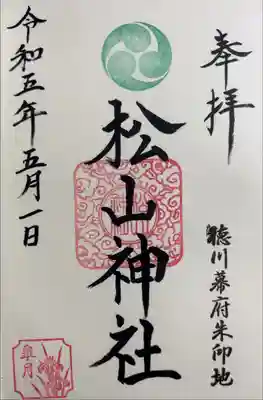 奉拝
聴川幕府朱印地
松山神社
令和五年五月一日
皐月